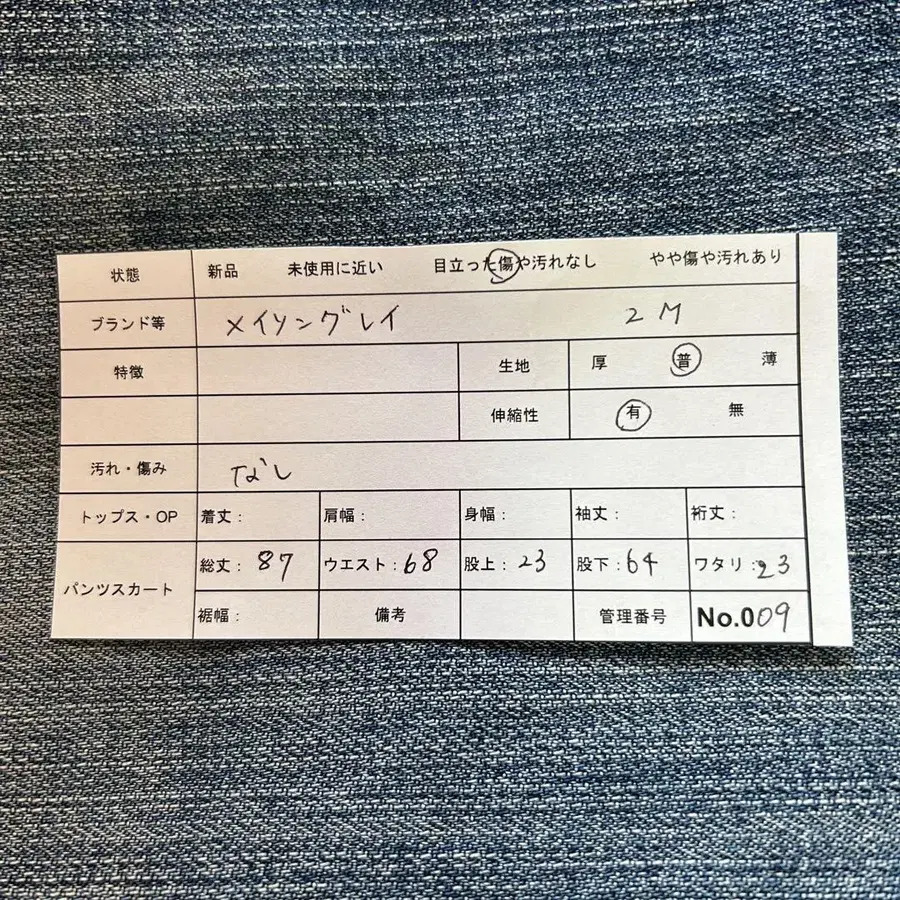 状態 新品 未使用に近い 目立った傷や汚れなし やや傷や汚れあり
ブランド等 メイソングレイ 2 M
特徴 生地 厚 普 薄
伸縮性 有 無
汚れ・傷み なし
トップス・OP 着丈: 肩幅: 身幅: 袖丈: 裄丈:
パンツスカート 総丈: 87 ウエスト: 68 股上: 23 股下: 64 ワタリ: 23
裾幅: 備考 管理番号 No.009